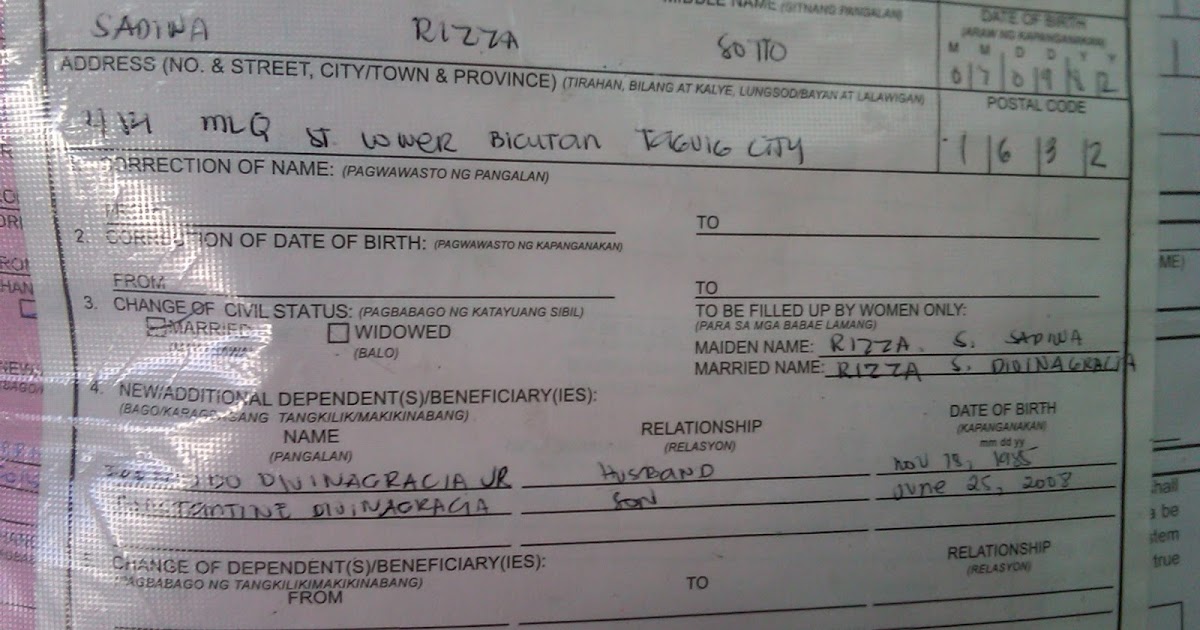 MIDDLE NAME (GITNANG PANGALAN)
DATE OF BIRTH
(ARAW NG KAPANGANAKAN)
SADINA RIZZA SOTTO
M M D D Y Y
0 7 0 9 8 2
ADDRESS (NO. & STREET, CITY/TOWN & PROVINCE) (TIRAHAN, BILANG AT KALYE, LUNGSOD/BAYAN AT LALAWIGAN)
POSTAL CODE
MLQ ST. LOWER BICUTAN TAGUIG CITY
1 6 3 2
CORRECTION OF NAME: (PAGWAWASTO NG PANGALAN)
TO
2. CORRECTION OF DATE OF BIRTH: (PAGWAWASTO NG KAPANGANAKAN)
FROM TO
3. CHANGE OF CIVIL STATUS: (PAGBABAGO NG KATAYUANG SIBIL)
TO BE FILLED UP BY WOMEN ONLY:
(PARA SA MGA BABAE LAMANG)
MARRIED WIDOWED
(BALO)
MAIDEN NAME: RIZZA S. SADINA
MARRIED NAME: RIZZA S. DIVINAGRACIA
4. NEW/ADDITIONAL DEPENDENT(S)/BENEFICIARY(IES):
TANGKILIK/MAKIKINABANG)
NAME RELATIONSHIP DATE OF BIRTH
(PANGALAN) (RELASYON) (KAPANGANAKAN)
mm dd yy
DIVINAGRACIA JR HUSBAND NOV 18, 1985
DIVINAGRACIA SON JUNE 25, 2008
5. CHANGE OF DEPENDENT(S)/BENEFICIARY(IES):
(PAGBABAGO NG TANGKILIKIMAKIKINABANG)
FROM TO
RELATIONSHIP
(RELASYON)